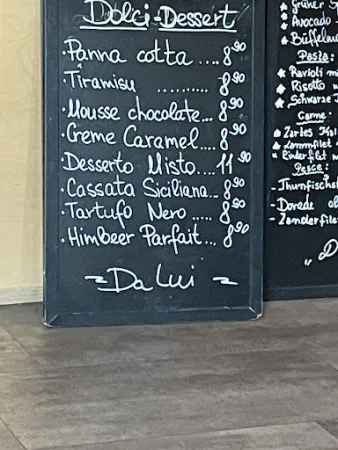 Dolci-Dessert
Panna cotta .... 8,90
Tiramisu .......... 8,90
·Mousse chocolate... 8,90
·Creme Caramel.... 8,90
Desserto Misto.... 11,90
·Cassata Siciliana... 8,90
·Tartufo Nero ..... 8,90
·Himbeer Parfait... 8,90
Da Lui
Grüner
Avocado
Pasta:
Ravioli
Risotto
Schwarze
Carne:
Zartes
Lammfilet
Rinderfilet
Pesce:
-Thunfisch
-Dorade
-Zanderfilet